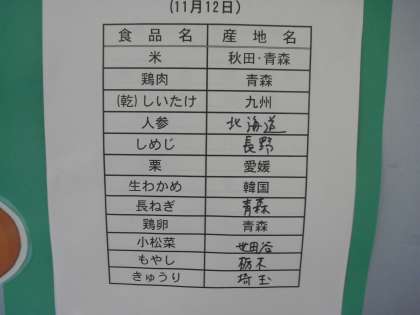 (11月12日)
食品名 産地名
米 秋田・青森
鶏肉 青森
(乾)しいたけ 九州
人参 北海道
しめじ 長野
栗 愛媛
生わかめ 韓国
長ねぎ 青森
鶏卵 青森
小松菜 世田谷
もやし 栃木
きゅうり 埼玉